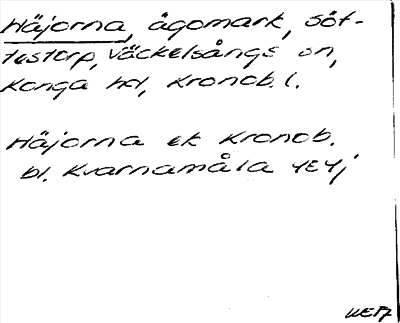 Häjorna, ägomark, Söt-
testorp, Väckelsångs sn,
Konga hd, Kronob. l.
Häjorna ek Kronob.
bl. Kvarnamåla 4E4j